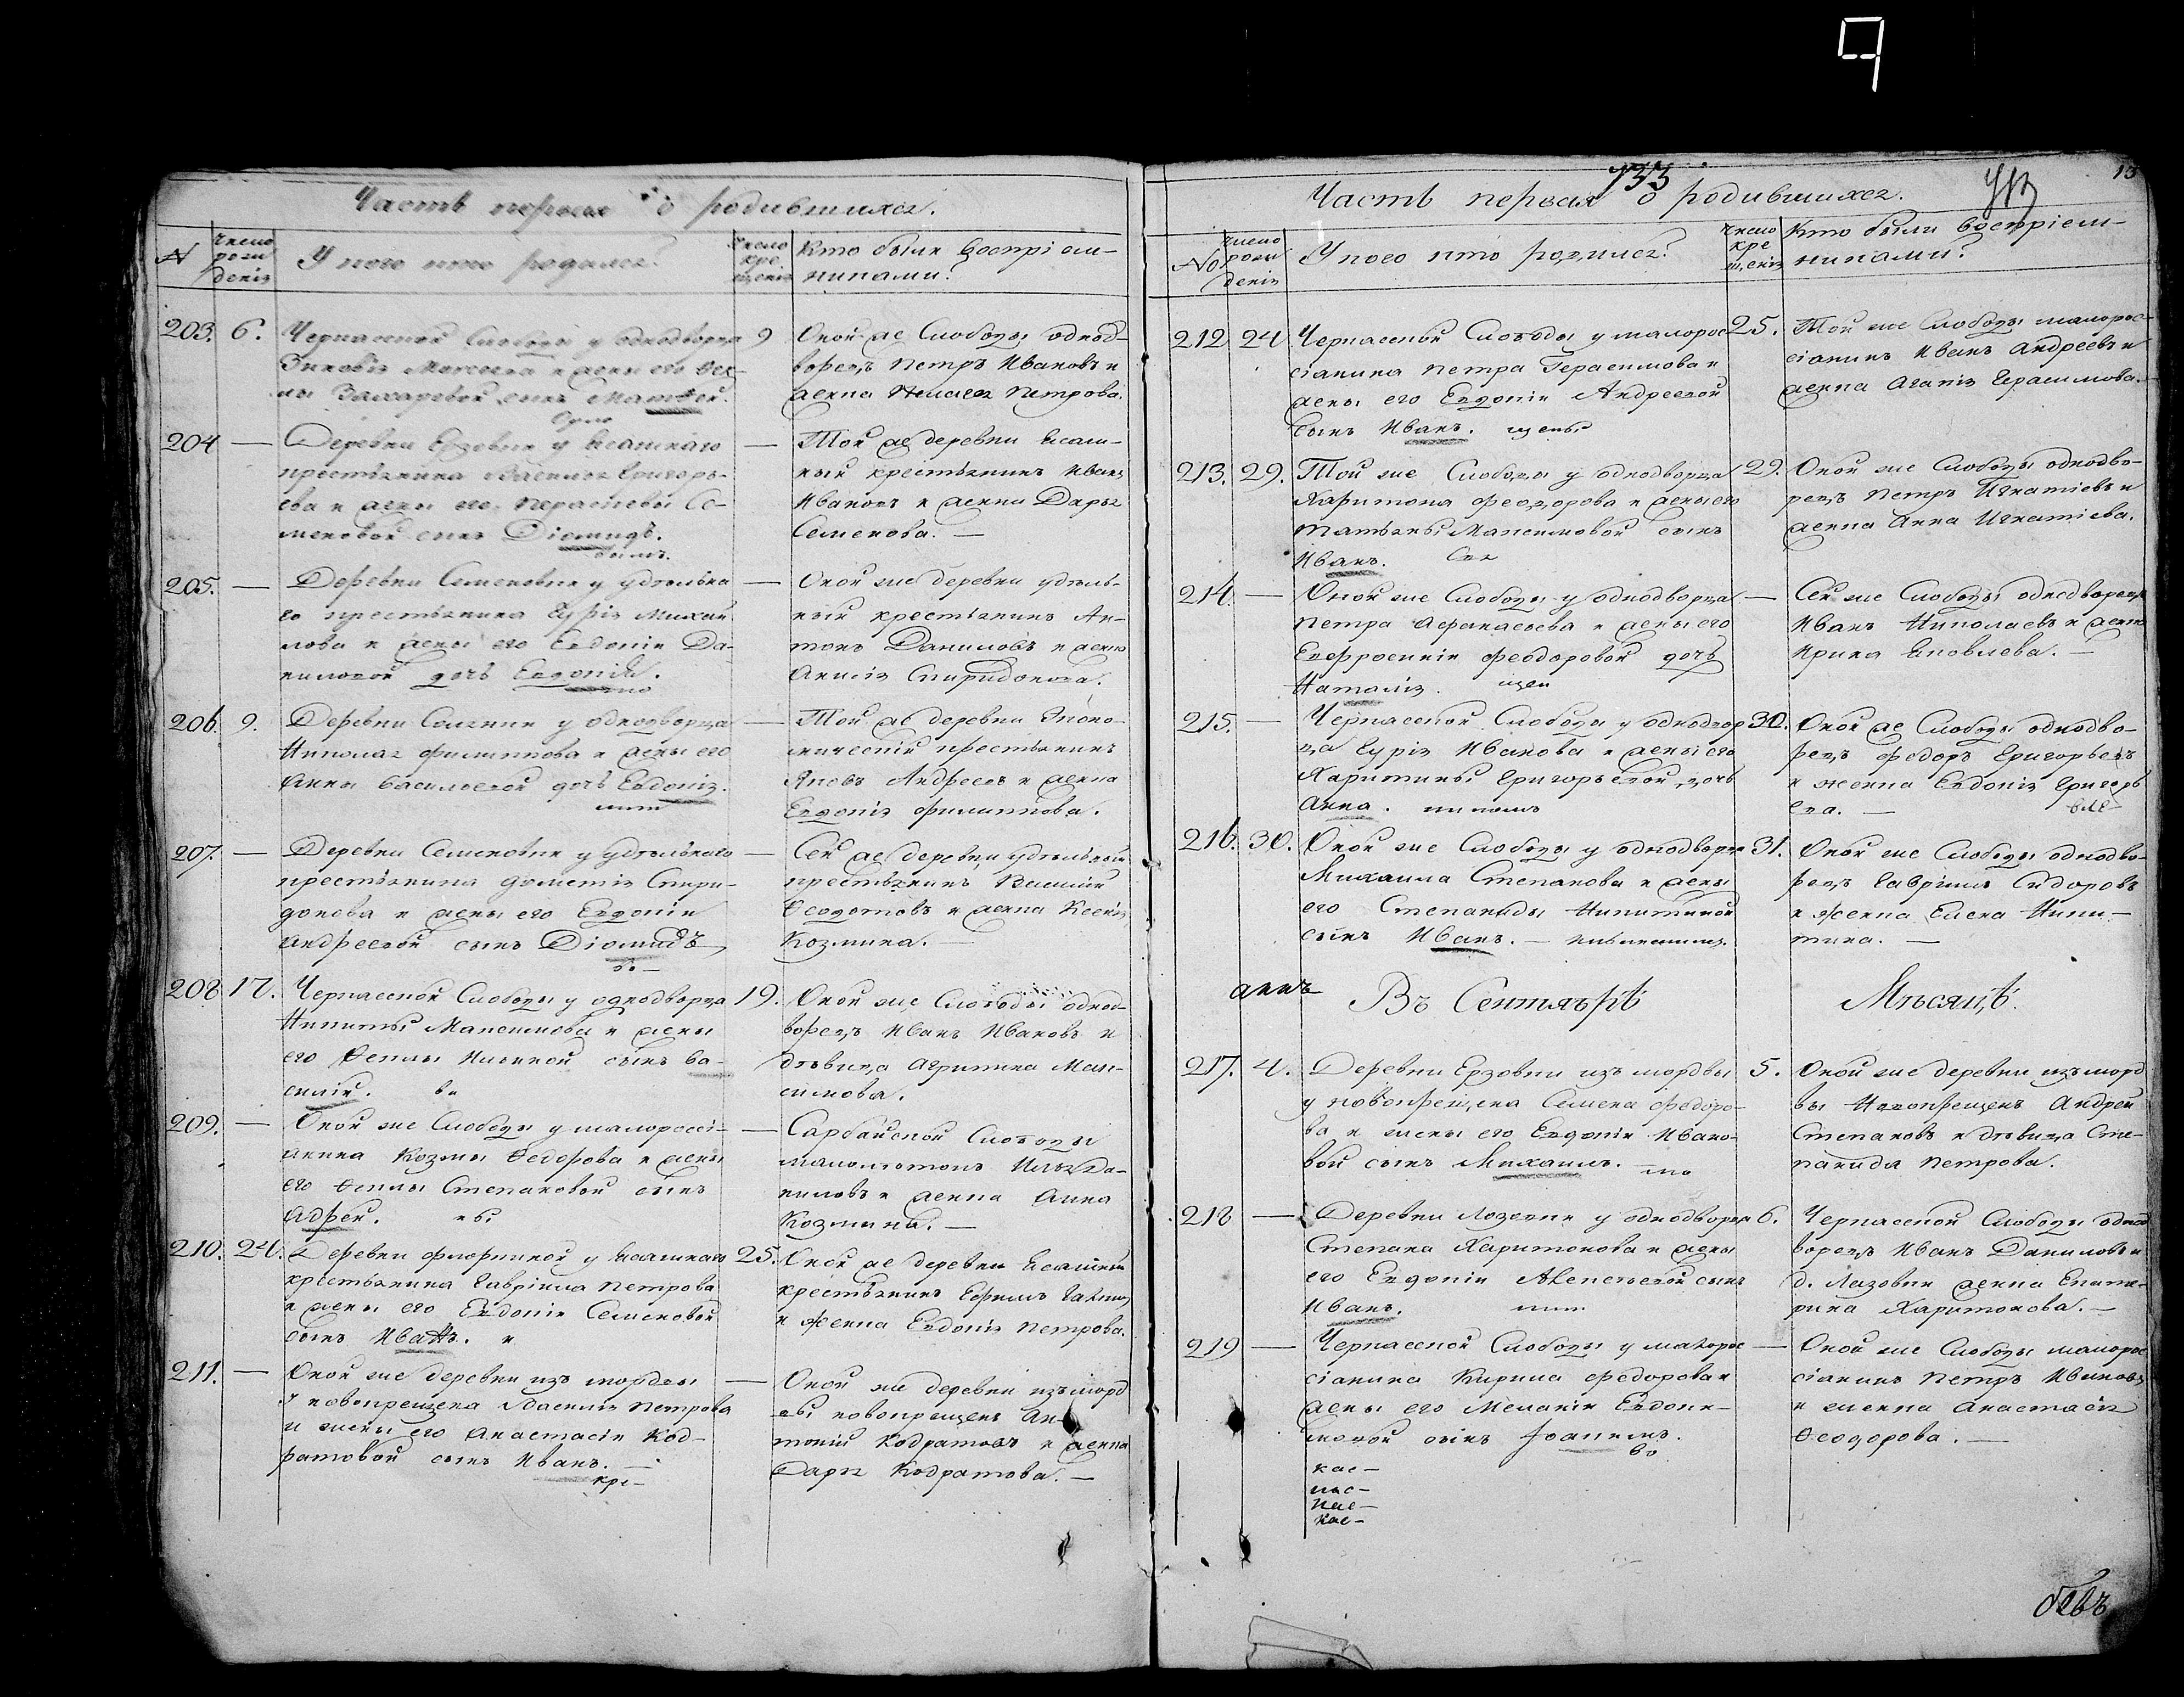 Часть первая о родившихся.
N
число рождения
У кого кто родился?
число крещения
Кто были воспріем-
никами?
203. 6. Черкасской Слободы у однодворца
Зиновія Моисеева и жены его Фек-
лы Захаровой сынъ Матфей.
9 Оной же Слободы однод-
ворецъ Петръ Ивановъ и
женка Пелагея Петрова.
204 — Деревни Ерзовки у ясашнаго
крестьянина Василья Григорь-
ева и жены его Парасковьи Се-
меновой сынъ Діомидъ.
— Той же деревни ясаш-
ный крестьянинъ Иванъ
Ивановъ и женка Дарья
Семенова. —
205. — Деревни Семеновки у удѣльна
го крестьянина Гурія Михай
лова и жены его Евдокіи Да-
ниловой дочь Евдокія.
— Оной же деревни удѣль-
ный крестьянинъ Ан-
тонъ Даниловъ и женка
Анисія Спиридонова.
206. 9. Деревни у однодворца
Николая Филиппова и жены его
Анны Васильевой дочь Евдокія.
— Той же деревни Эконо-
мическій крестьянинъ
Яковъ Андреевъ и женка
Евдокія Филиппова.
207. — Деревни Семеновки у удѣльнаго
крестьянина Дометія Спири-
донова и жены его Евдокіи
Андреевой сынъ Діомидъ
— Сей же деревни удѣльный
крестьянинъ Василій
Ѳеодотовъ и женка Ксенія
Козмина. —
208 17. Черкасской Слободы у однодворца
Никиты Максимова и жены
его Ѳеклы Ильиной сынъ Ва-
силій.
19. Оной же Слободы однод-
ворецъ Иванъ Ивановъ и
дѣвица Агрипина Мак-
симова.
209. — Оной же Слободы у малороссі-
янина Козмы Ѳедорова и жены
его Ѳеклы Степановой сынъ
Адрей.
— Сарбайской Слободы
Илья Да-
ниловъ и женка Анна
Козмина. —
210. 24. Деревни у ясашнаго
крестьянина Гавріила Петрова
и жены его Евдокіи Семеновой
сынъ Иванъ.
25. Оной же деревни ясашный
крестьянинъ Ефимъ
и женка Евдокія Петрова.
211. — Оной же деревни изъ мордвы
у новокрещена Василія Петрова
и жены его Анастасіи Код-
ратовой сынъ Иванъ. —
кре-
— Оной же деревни изъ морд
вы новокрещенъ Ан-
тоній Кодратовъ и женка
Дарья Кодратова. —
733
13
Часть первая о родившихся.
No
число рождения
У кого кто родился?
число крещения
Кто были воспріем-
никами?
212 24 Черкасской Слободы у малорос
сіанина Петра Герасимова и
жены его Евдокіи Андреевой
сынъ Иванъ. щены
25. Той же Слободы малорос-
сіанинъ Иванъ Андреевъ и
женка Агапія Герасимова. —
213. 29. Той же Слободы у однодворца
Харитона Феодорова и жены его
Татьяны Максимовой сынъ
Иванъ. Свя
29. Оной же Слободы однодво-
рецъ Петръ Игнатіевъ и
женка Анна Игнатіева.
214. — Оной же Слободы у однодворца
Петра Афанасьева и жены его
Евфросиніи Феодоровой дочь
Наталія. щен
— Сей же Слободы однодворецъ
Иванъ Николаевъ и женка
Ирина Яковлева. —
215. — Черкасской Слободы у однодвор
ца Гурія Иванова и жены его
Харитины Григорьевой дочь
Анна. никомъ
30. Оной же Слободы однодво-
рецъ Федоръ Григорьевъ
и женка Евдокія Григорь
ева. —
216. 30. Оной же Слободы у однодворца
Михаила Степанова и жены
его Степаниды Никитиной
сынъ Иванъ. —
31. Оной же Слободы однодво-
рецъ Гавріилъ Сидоровъ
и женка Елена Ники-
тина. —
Въ Сентябрѣ Мѣсяцѣ.
217. 4. Деревни Ерзовки изъ мордвы
у новокрещена Семена Федоро-
ва и жены его Евдокіи Ивано-
вой сынъ Михаилъ.
5. Оной же деревни изъ морд
вы Новокрещенъ Андрей
Степановъ и дѣвица Сте-
панида Петрова.
218 — Деревни Лозовки у однодворца
Степана Харитонова и жены
его Евдокіи Алексѣевой сынъ
Иванъ.
6. Черкасской Слободы однод
ворецъ Иванъ Даниловъ и
д. Лазовки женка Екате-
рина Харитонова. —
219 — Черкасской Слободы у малорос
сіанина Кирила Федорова и
жены его Меланіи Евдоки-
мовой сынъ Іоакимъ.
во
— Оной же Слободы малорос
сіанинъ Петръ Ивановъ
и женка Анастасія
Ѳеодорова. —